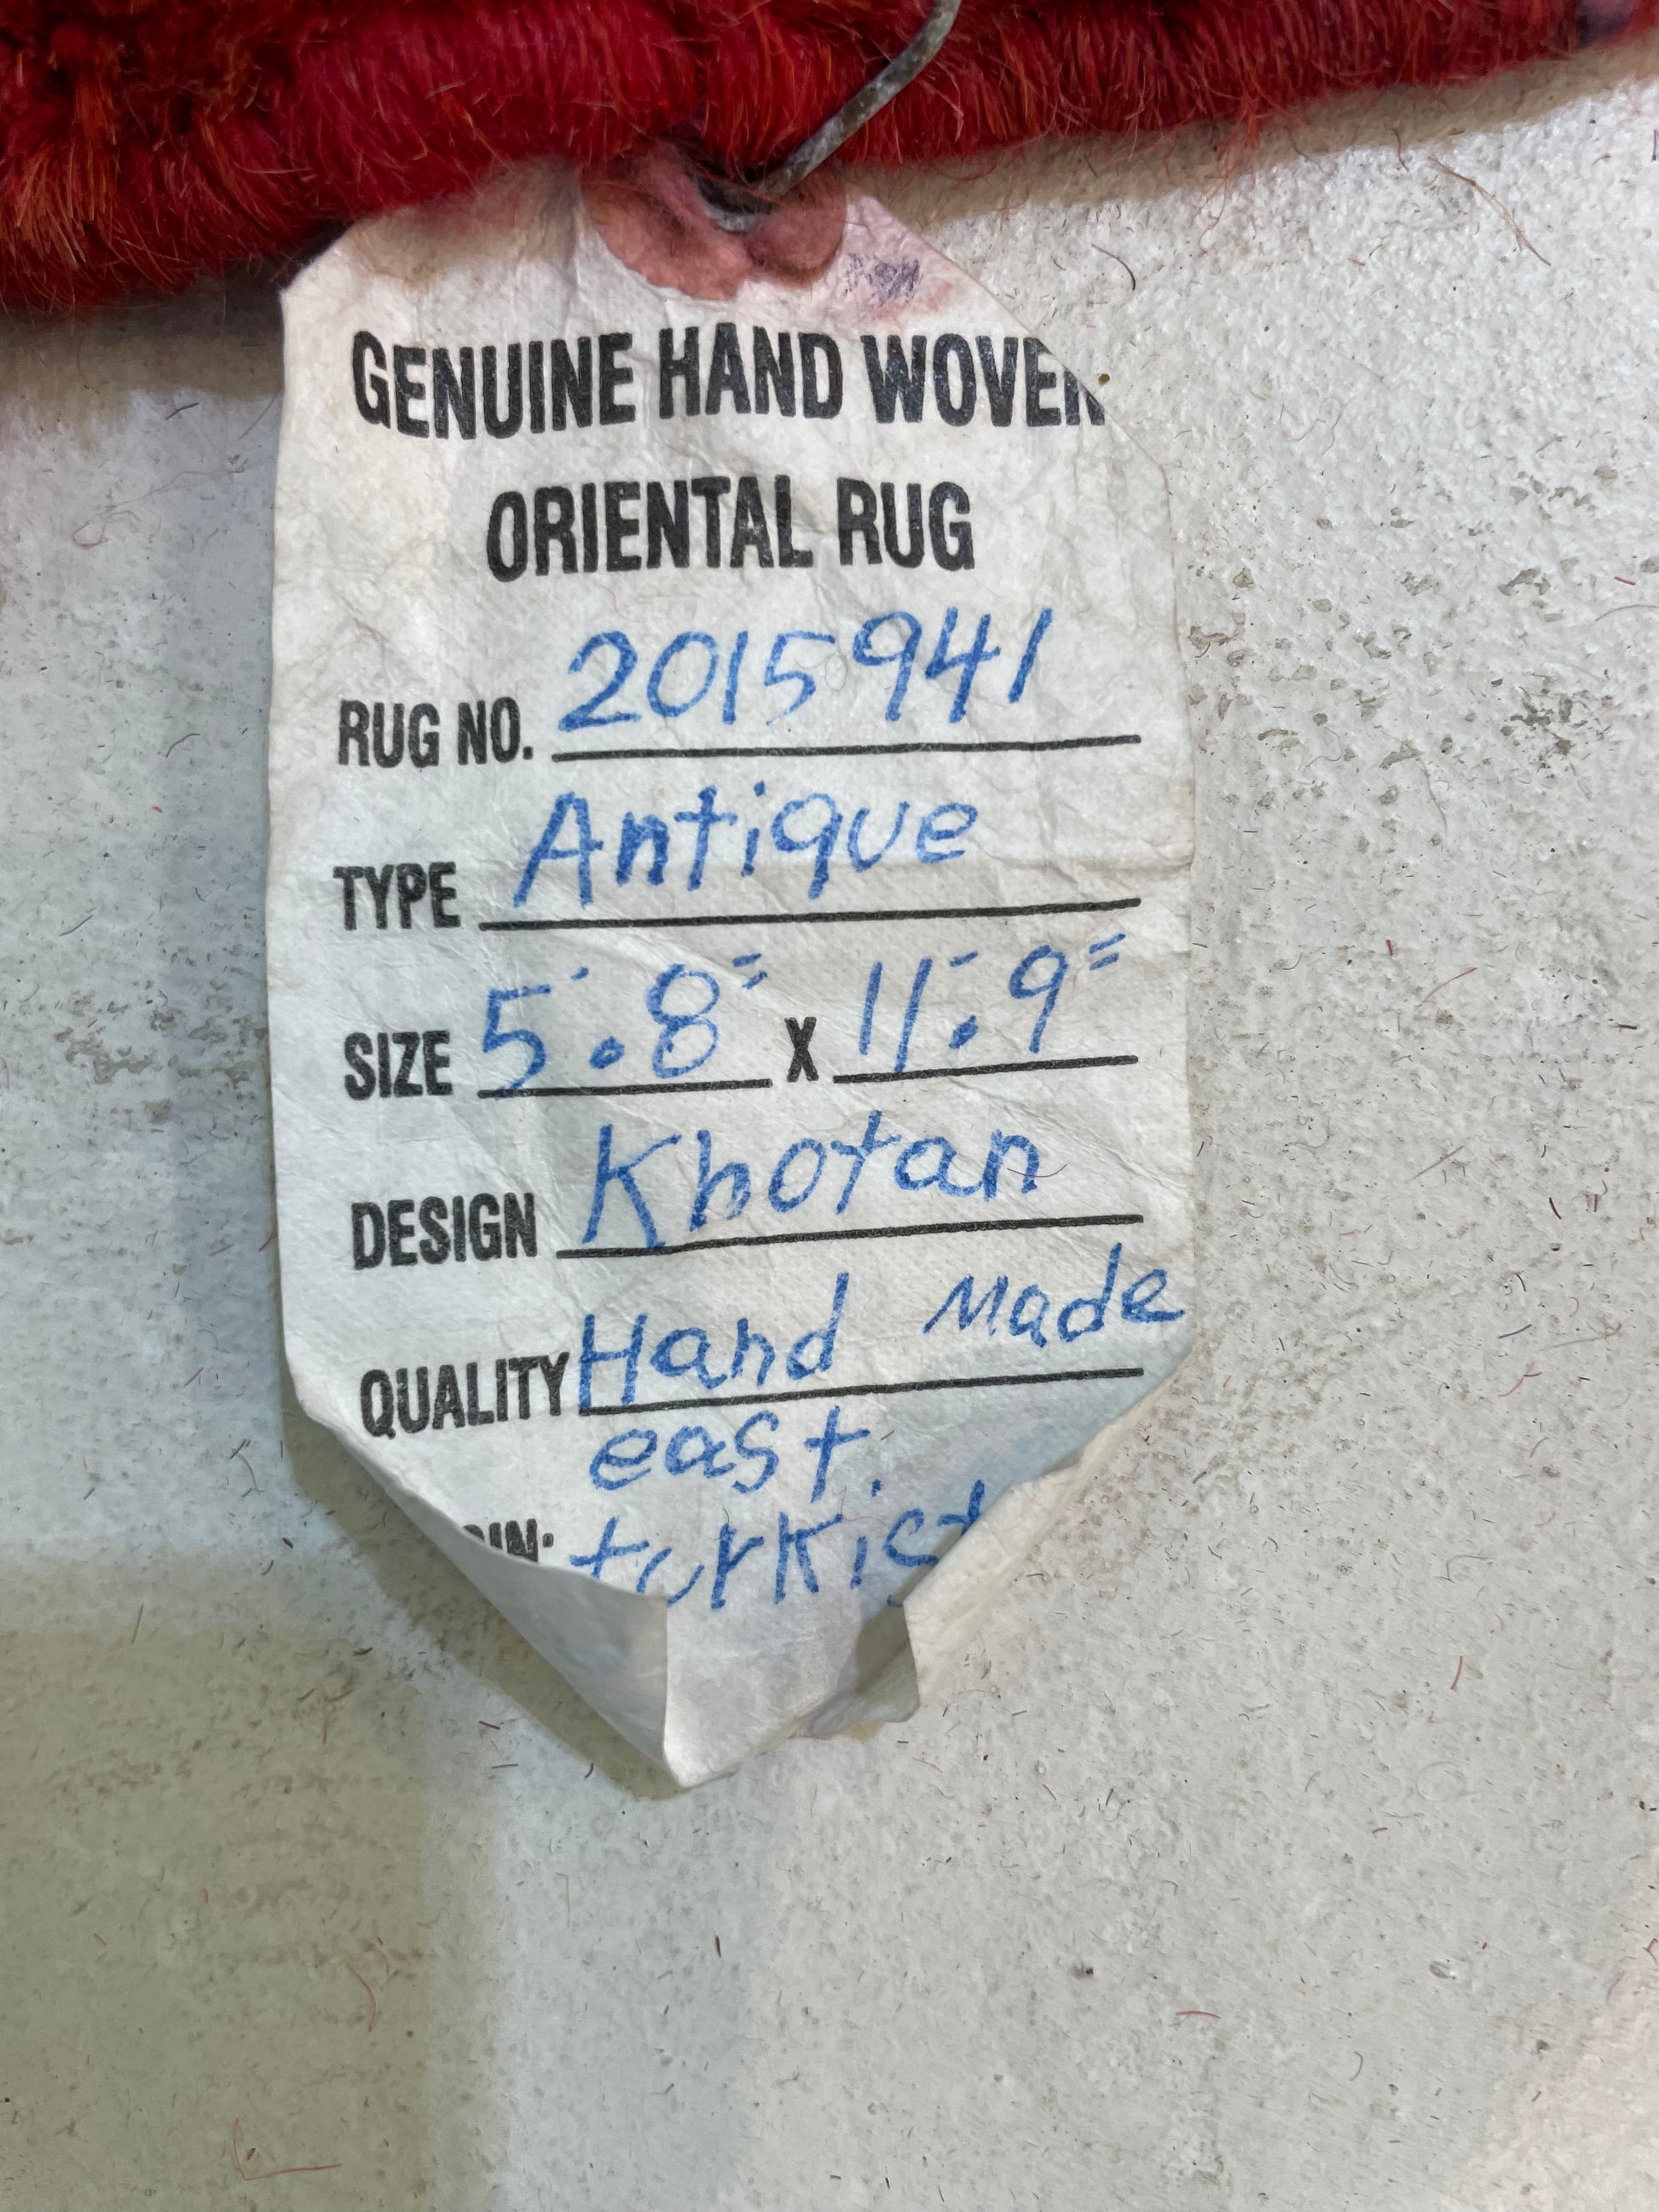 GENUINE HAND WOVEN
ORIENTAL RUG
RUG NO. 2015941
TYPE Antique
SIZE 5'.8" X 11'.9"
DESIGN Khotan
QUALITY Hand Made
east.